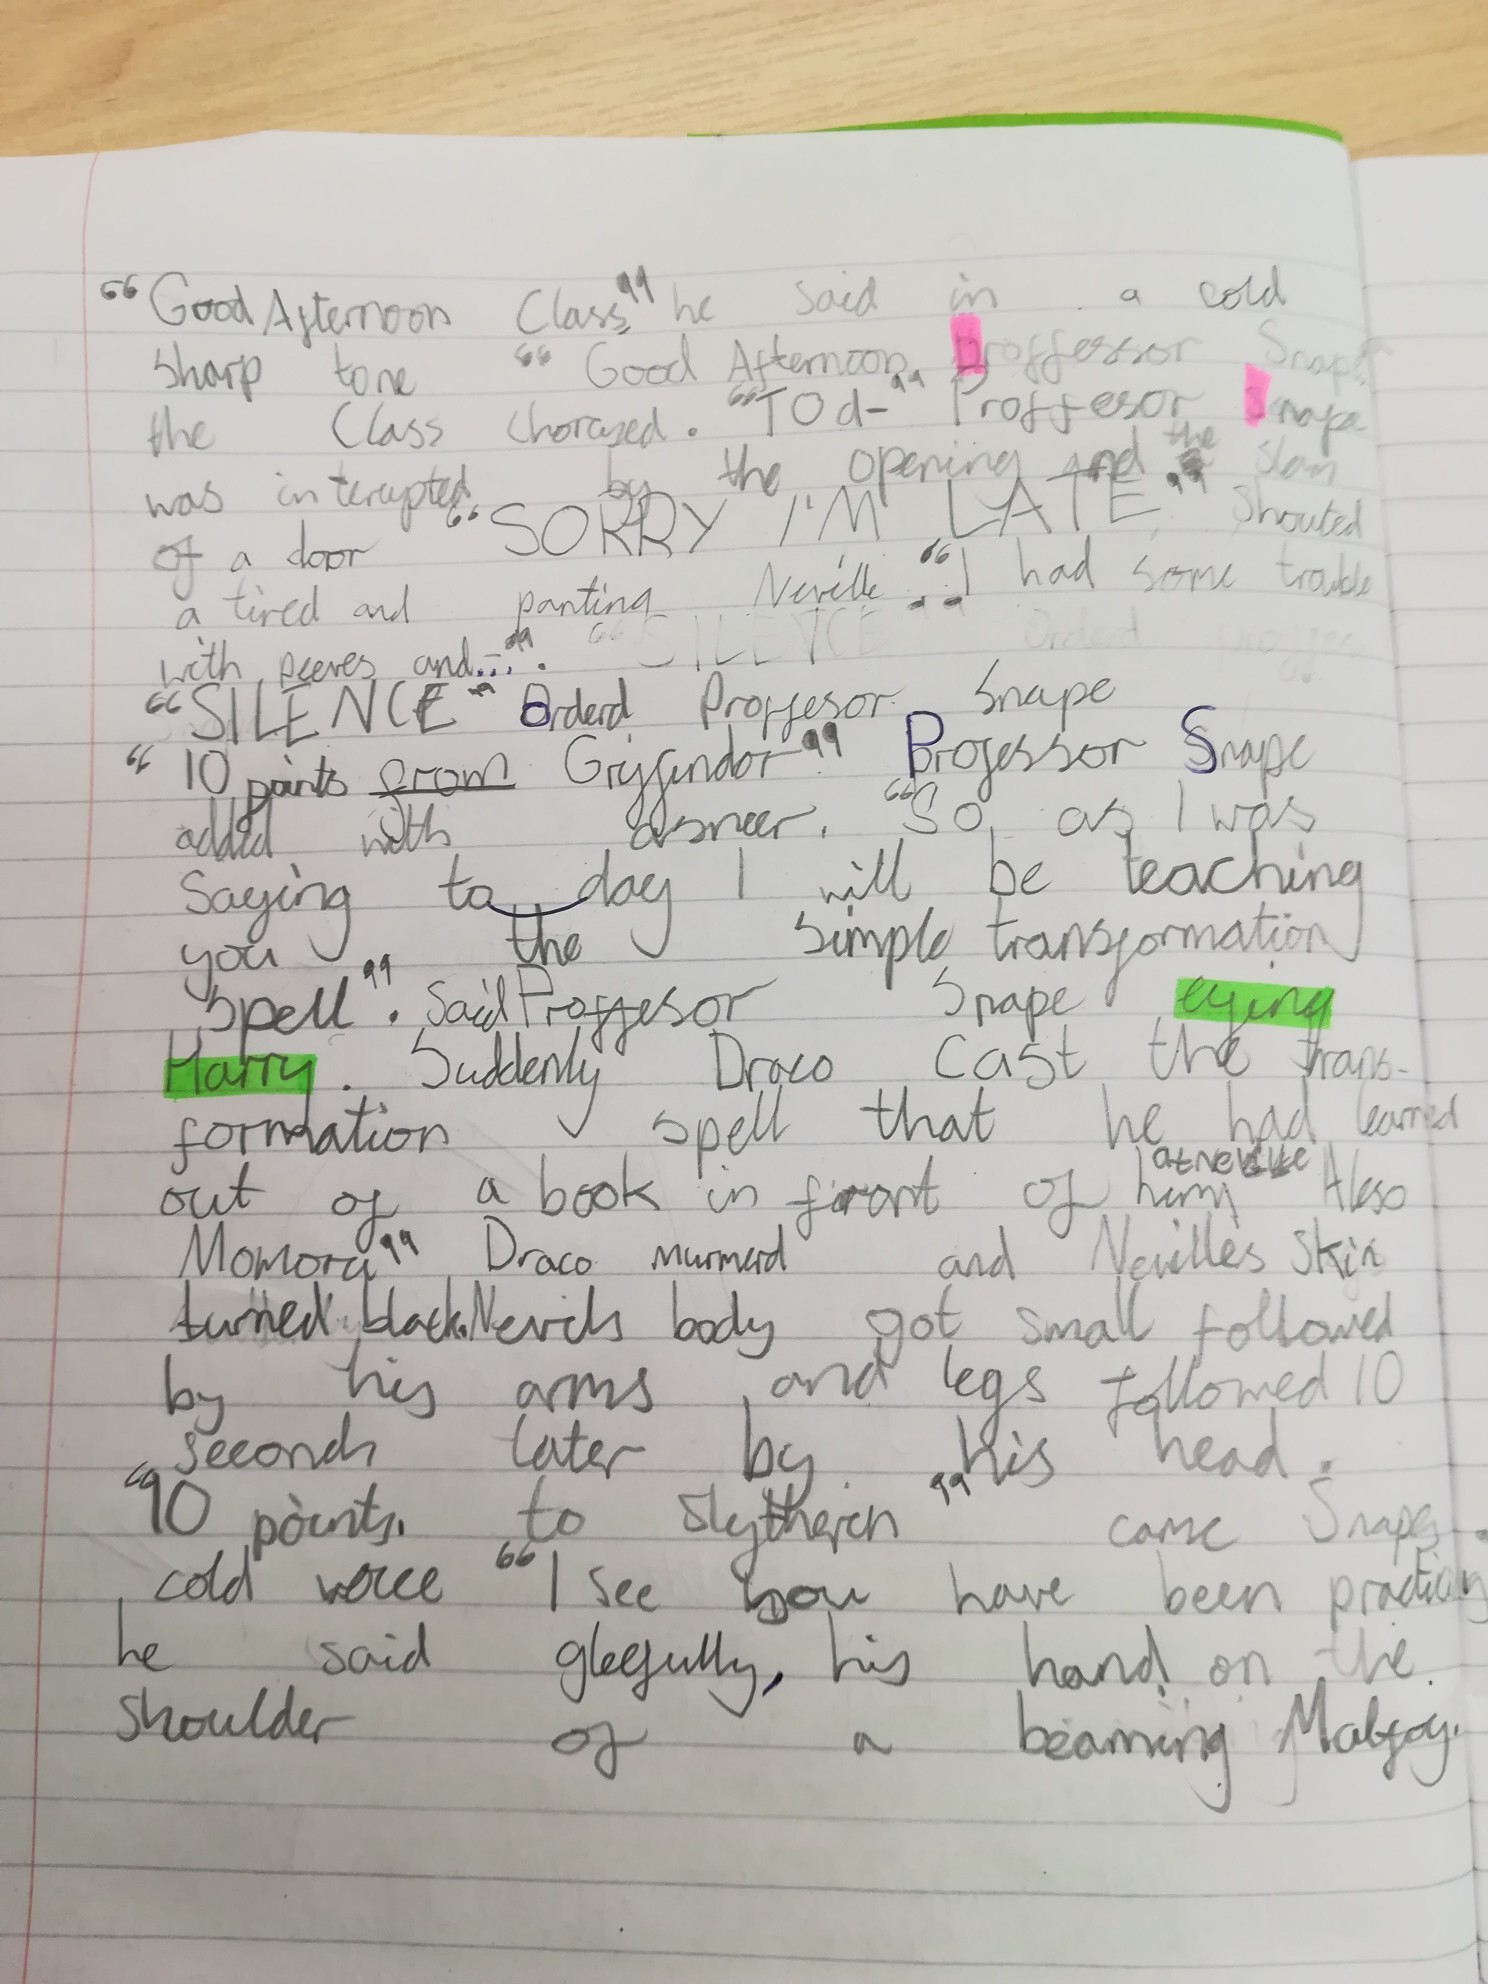 “Good Afternoon Class,” he said in a cold
sharp tone “Good Afternoon Proffessor Snape
the Class chorused. “TOd-” Proffesor Snape
was interupted by the opening and the slam
of a door “SORRY I'M LATE” Shouted
a tired and panting Neville. “I had some trouble
with peeves and...”. “SILENCE” Orderd Proffes
“SILENCE” Orderd Proffesor Snape
“10 points from Gryffindor” Professor Snape
added with a sneer. “So, as I was
Saying to day I will be teaching
you the simple transformation
spell”. Said Proffesor Snape eying
Harry. Suddenly Draco Cast the trans-
formation spell that he had learned
out of a book in front of him, at neville “Aleso
Momora” Draco murmerd and Neville's Skin
turned black. Nevils body got small followed
by his arms and legs followed 10
seconds later by his head.
“10 points, to Slytherin” came Snapes
cold voice “I see you have been practicing
he said gleefully, his hand on the
shoulder of a beaming Malfoy.